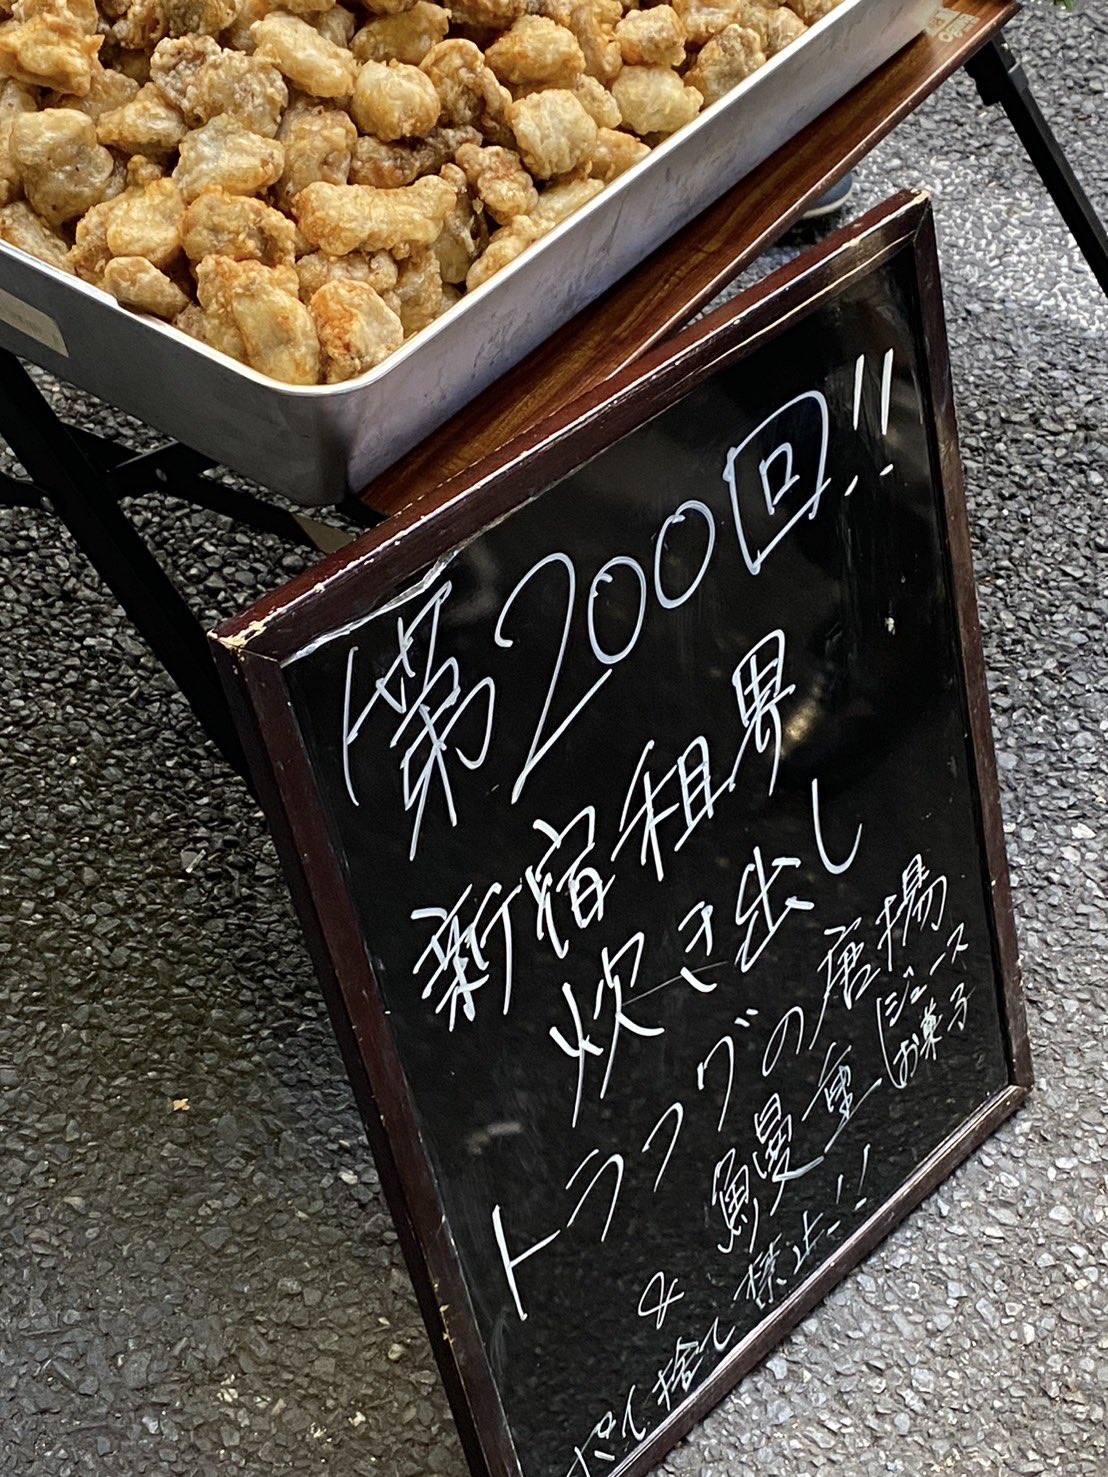 第200回!!
新宿租界
炊き出し
トラフグの唐揚
& 鰻重
ジュース
お菓子
ポイ捨て禁止!!